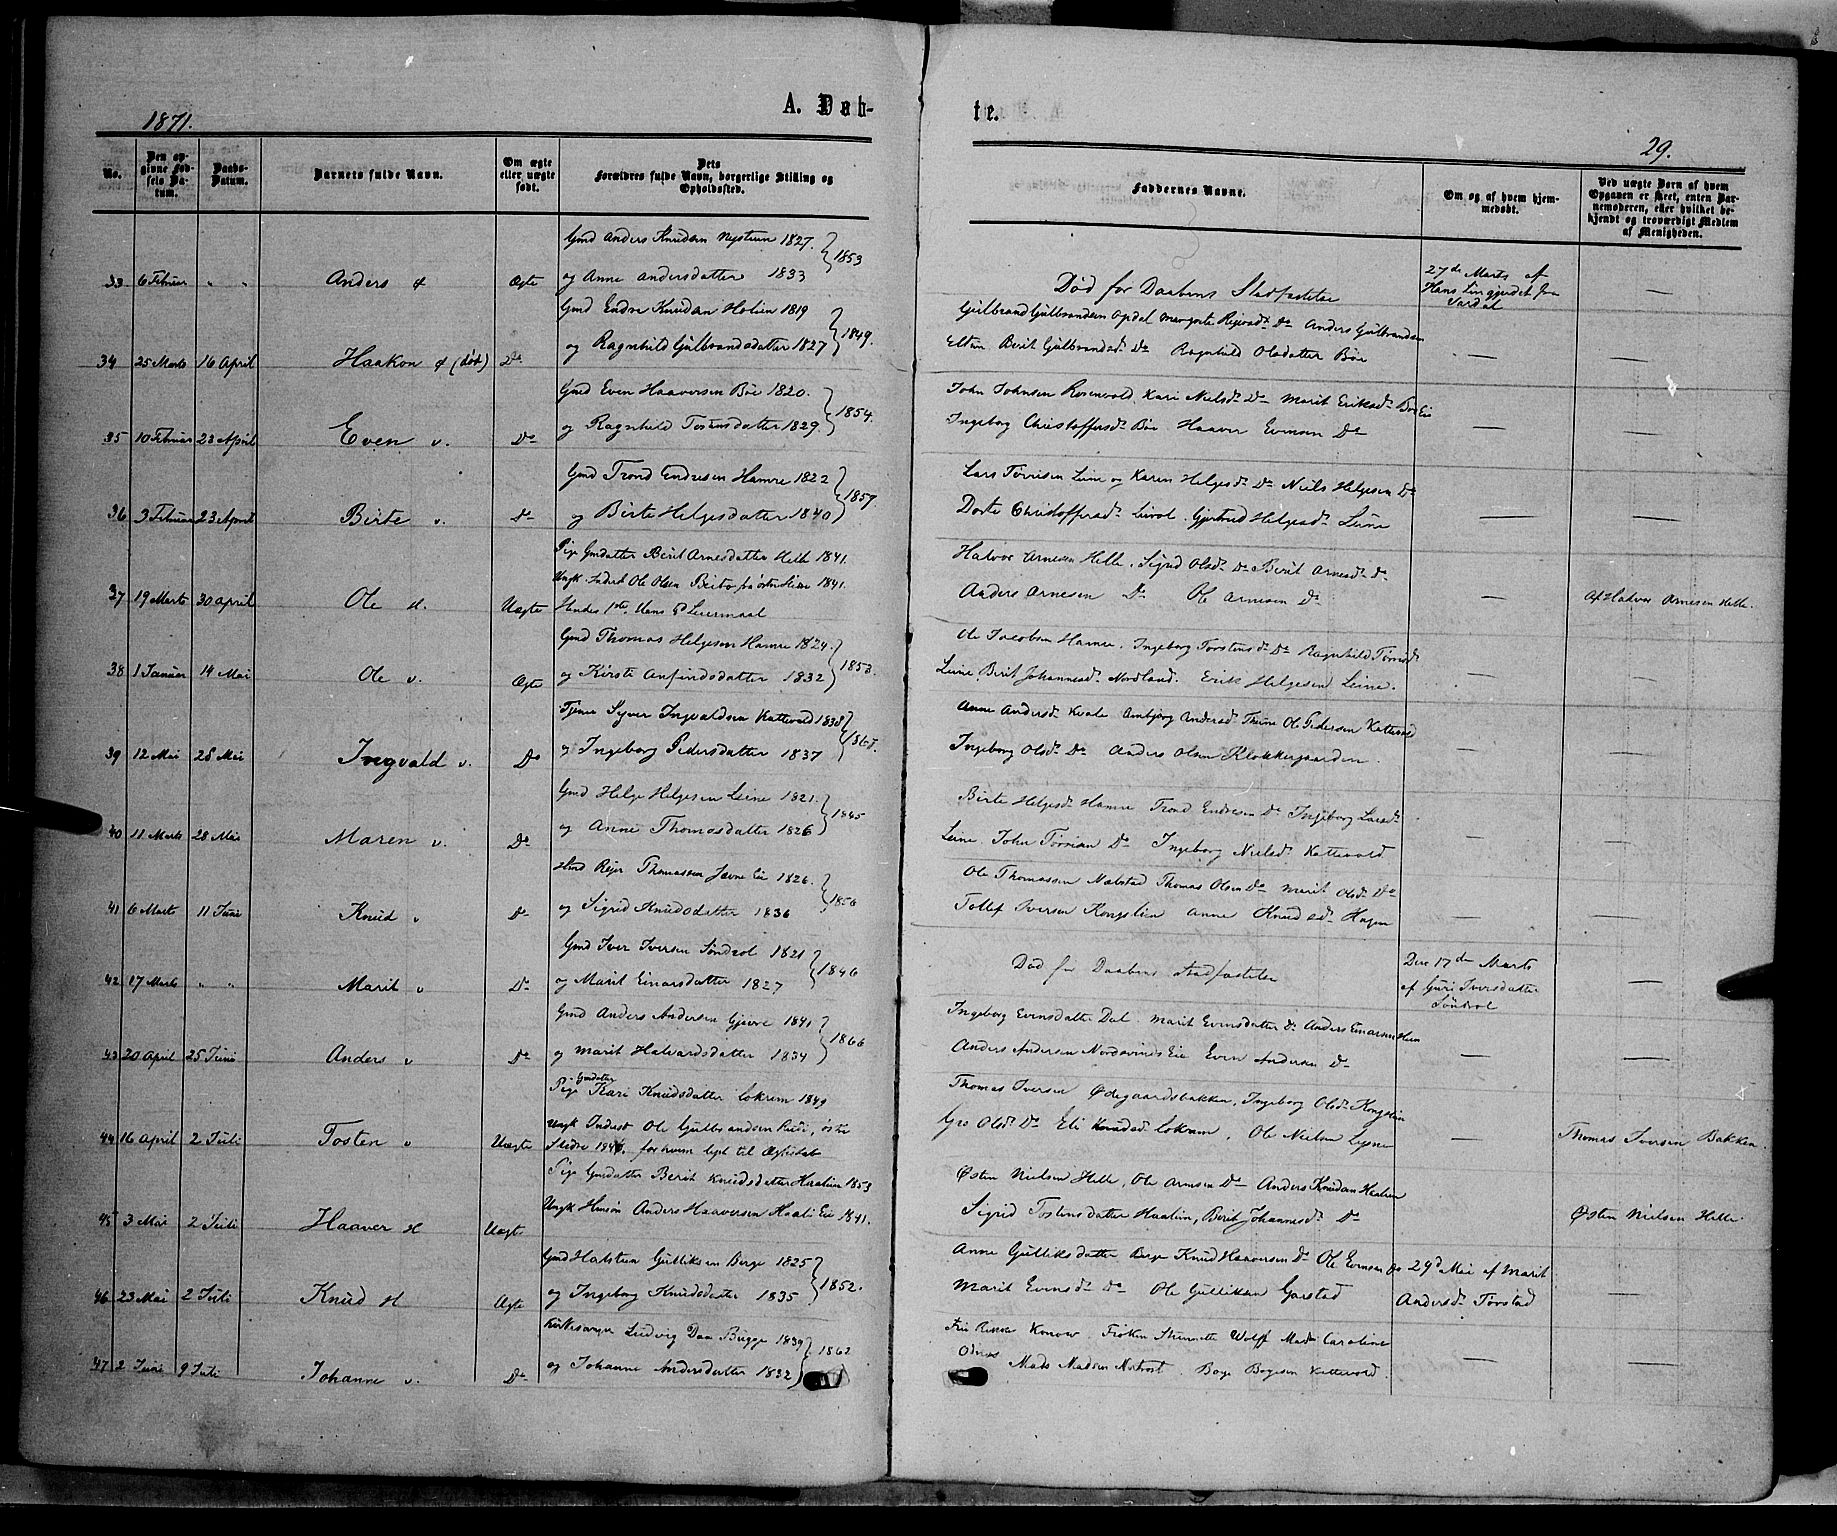 1871.
A. Døb-
te.
29.
No.
Den op-
givne Fød-
sels Da-
tum.
Daabs-
Datum.
Barnets fulde Navn.
Om ægte
eller uægte
født.
Dets
Forældres fulde Navn, borgerlige Stilling og
Opholdssted.
Faddernes Navne.
Om og af hvem hjem-
medøbt.
Ved uægte Børn af hvem
Opgaven er skeet, enten Bar-
nemoderen, eller hvilket be-
kjendt og troværdigt Medlem
af Menigheden.
Gmd Anders Knudsen 1827.
33 6 Februar " " Anders Ægte og Anne Andersdatter 1833 } 1853
Død før Daabens Stadfæstelse
27de Marts af
Hans
Gmd Endre Knudsen 1819
34 25 Marts 16 April Haakon (død) Do og Ragnhild Gulbrandsdatter 1827 } 1849.
Gulbrand Gulbrandsen Opdal Margrete Do Anders Gulbrandsen
Elton Berit Gulbrandsd. Do Ragnhild Olsdatter Bøe —
Gmd Even Haaversen Bøe 1820.
35 10 Februar 23 April Even v. Do og Ragnhild Tostensdatter 1829. } 1854.
John Johnsen Rosenvold Kari Nielsd. Do Marit Eriksd. Bøe Eie
Ingeborg Christoffersd. Bøe Haaver Evensen Do —
Gmd Trond Endresen Hamre 1822
36 3 Februar 23 April Birte v. Do og Birte Helgesdatter 1840 } 1857.
Lars Leine og Karen Helgesd. Do Niels Helgesen Do
Dorte Christoffersd. Gjertrud Helgesd. Leine —
Pige Gmdatter Berit Arnesdatter Helle 1841.
Ungk. Ole Olsen 1841.
37 19 Marts 30 April Ole Uægte Hendes 1ste, Hans Leiermaal
Halvor Arnesen Helle. Sigrid Olsd. Do Berit Arnesd. Do
Anders Arnesen Do Ole Arnesen Do — Af Halvor Arnesen Helle.
Gmd Thomas Helgesen Hamre 1824.
38 1 Januar 14 Mai Ole v. Ægte og Kirste Anfindsdatter 1832 } 1853.
Ole Jacobsen Hamre, Ingeborg Torstensd. Do Ragnhild
Leine Berit Johannesd. Nordland. Erik Helgesen Leine. —
Tjener Syver Ingvaldsen Kattevold 1838
39 12 Mai 28 Mai Ingvald v. Do og Ingeborg Pedersdatter 1837 }
Anne Andersd. Kvale Ambjørg Andersd. Ole Pedersen Kattevold
Ingeborg Olsd. Do Anders Olsen Klokkergaarden. —
Gmd Helge Helgesen Leine 1821.
40 11 Marts 28 Mai Maren v. Do og Anne Thomasdatter 1826 } 1845
Birte Helgesd. Hamre Trond Endresen Do Ingeborg Larsd.
Leine. John Do Ingeborg Nielsd. Kattevold —
Thomassen Jevne Eie 1826.
41 6 Marts 11 Juni Knud v Do og Sigrid Knudsdatter 1836 } 1856
Ole Thomassen Nebstad Thomas Olsen Do Marit Olsd. Do
Tollef Iversen Kongslien Anne Knudsd. Hagen —
Gmd Iver Iversen Søndrol 1821
42 17 Marts " " Marit v Do og Marit Einarsdatter 1827 } 1846
Død før Daabens Stadfæstelse
Den 17de Marts
af Guri Iversdatter
Søndrol —
Gmd Anders Andersen 1841
43 20 April 25 Juni Anders v Do og Marit Halvardsdatter 1834 } 1866
Ingeborg Evensdatter Dal. Marit Evensdatter Do Anders Einarsen
Anders Andersen Eie Even Andersen Do —
Gmdatter
Pige Kari Knudsdatter Lokrem 1849
Ungk. Inderst Ole Gulbrandsen
44 16 April 2 Juli Tosten v Uægte Slidre for hvem lyst til Ægteskab
Thomas Iversen Ødegaardsbakken, Ingeborg Olsd. Kongslien
Gro Olsd. Do Eli Knudsd. Lokrem. Ole Nielsen — Thomas Iversen Bakken.
Pige Gmdatter Berit Knudsdatter Haalien 1853
45 3 Mai 2 Juli Haaver Uægte Ungk. Anders Haaversen Eie 1841.
Østen Nielsen Helle, Ole Arnesen Do Anders Knudsen Haalien
Sigrid Tostensdatter Haalien, Berit Johannesd. Do Østen Nielsen Helle.
Gmd Halsten Gulliksen Berge 1825
46 23 Mai 2 Juli Knud Ægte og Ingeborg Knudsdatter 1835 } 1852.
Anne Gulliksdatter Berge Knud Haaversen Do Ole Evensen Do
Marit Evensd. Do Ole Gulliksen Garstad
29d Mai af Marit
Andersd. Torstad —
Kirkesanger Ludvig Daa Bugge 1839
47 2 Juni 9 Juli Johanne v. Do og Johanne Andersdatter 1832 } 1862
Konow. Frøken Wolff Caroline
Mads Madsen Boye Boyesen Kattevold. —